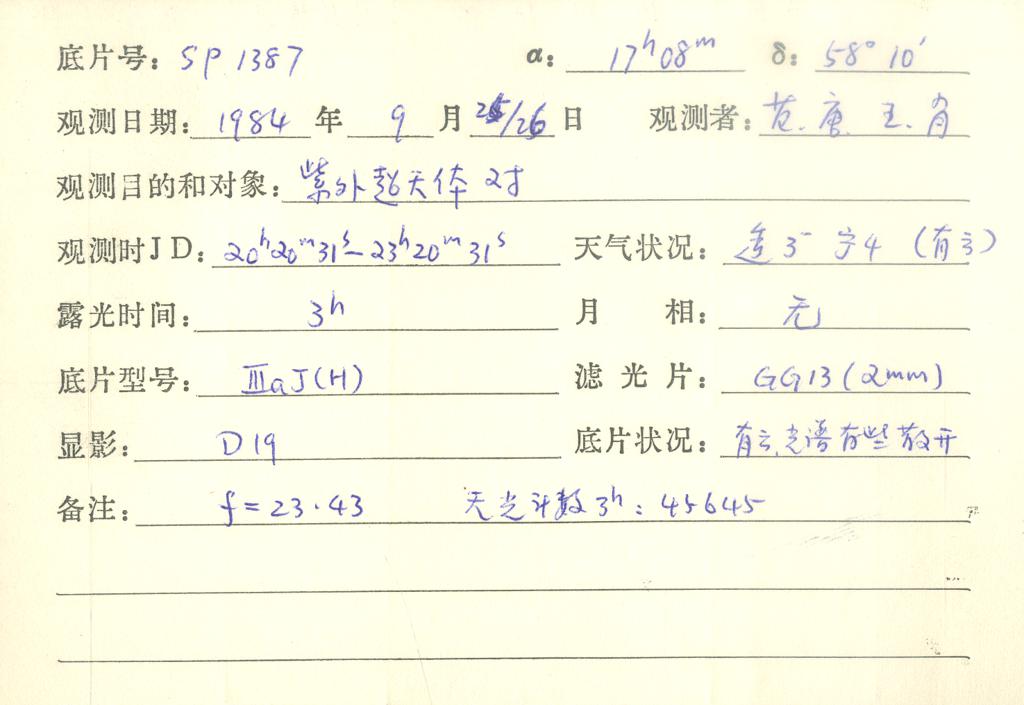 底片号: SP 1387 α: 17ʰ08ᵐ δ: 58° 10′
观测日期: 1984 年 9 月 25/26 日 观测者: 范.唐.王.肖
观测目的和对象: 紫外超天体 对
观测时JD: 20ʰ20ᵐ31ˢ—23ʰ20ᵐ31ˢ 天气状况: 3⁻ 宁4 (有云)
露光时间: 3ʰ 月 相: 无
底片型号: ⅢaJ(H) 滤 光 片: GG13 (2mm)
显影: D19 底片状况: 有云,光谱有些散开
备注: f=23.43 天光计数3ʰ: 45645